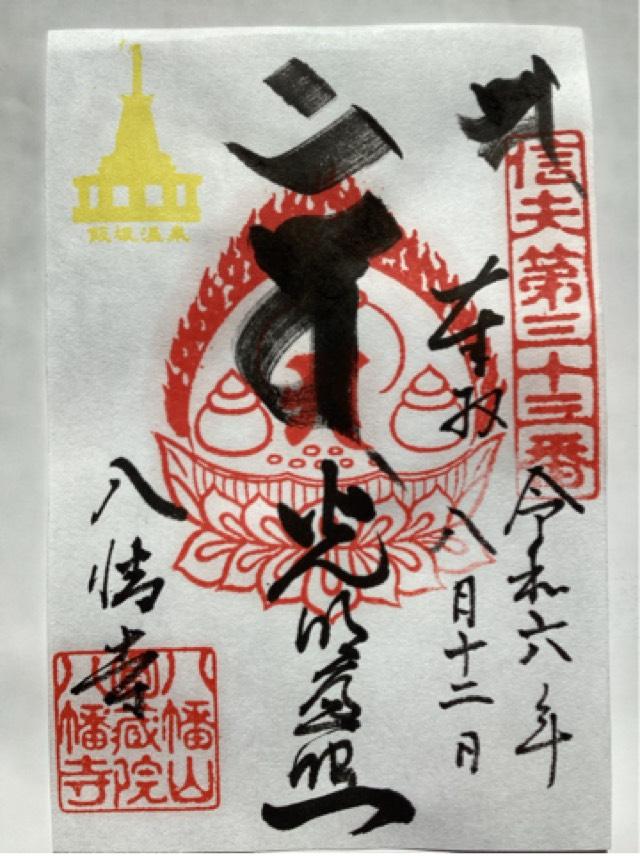 信夫第三十三番
令和六年
奉拝
八月十二日
光明遍照
飯坂温泉
八幡寺
八幡山
藏院
八幡寺